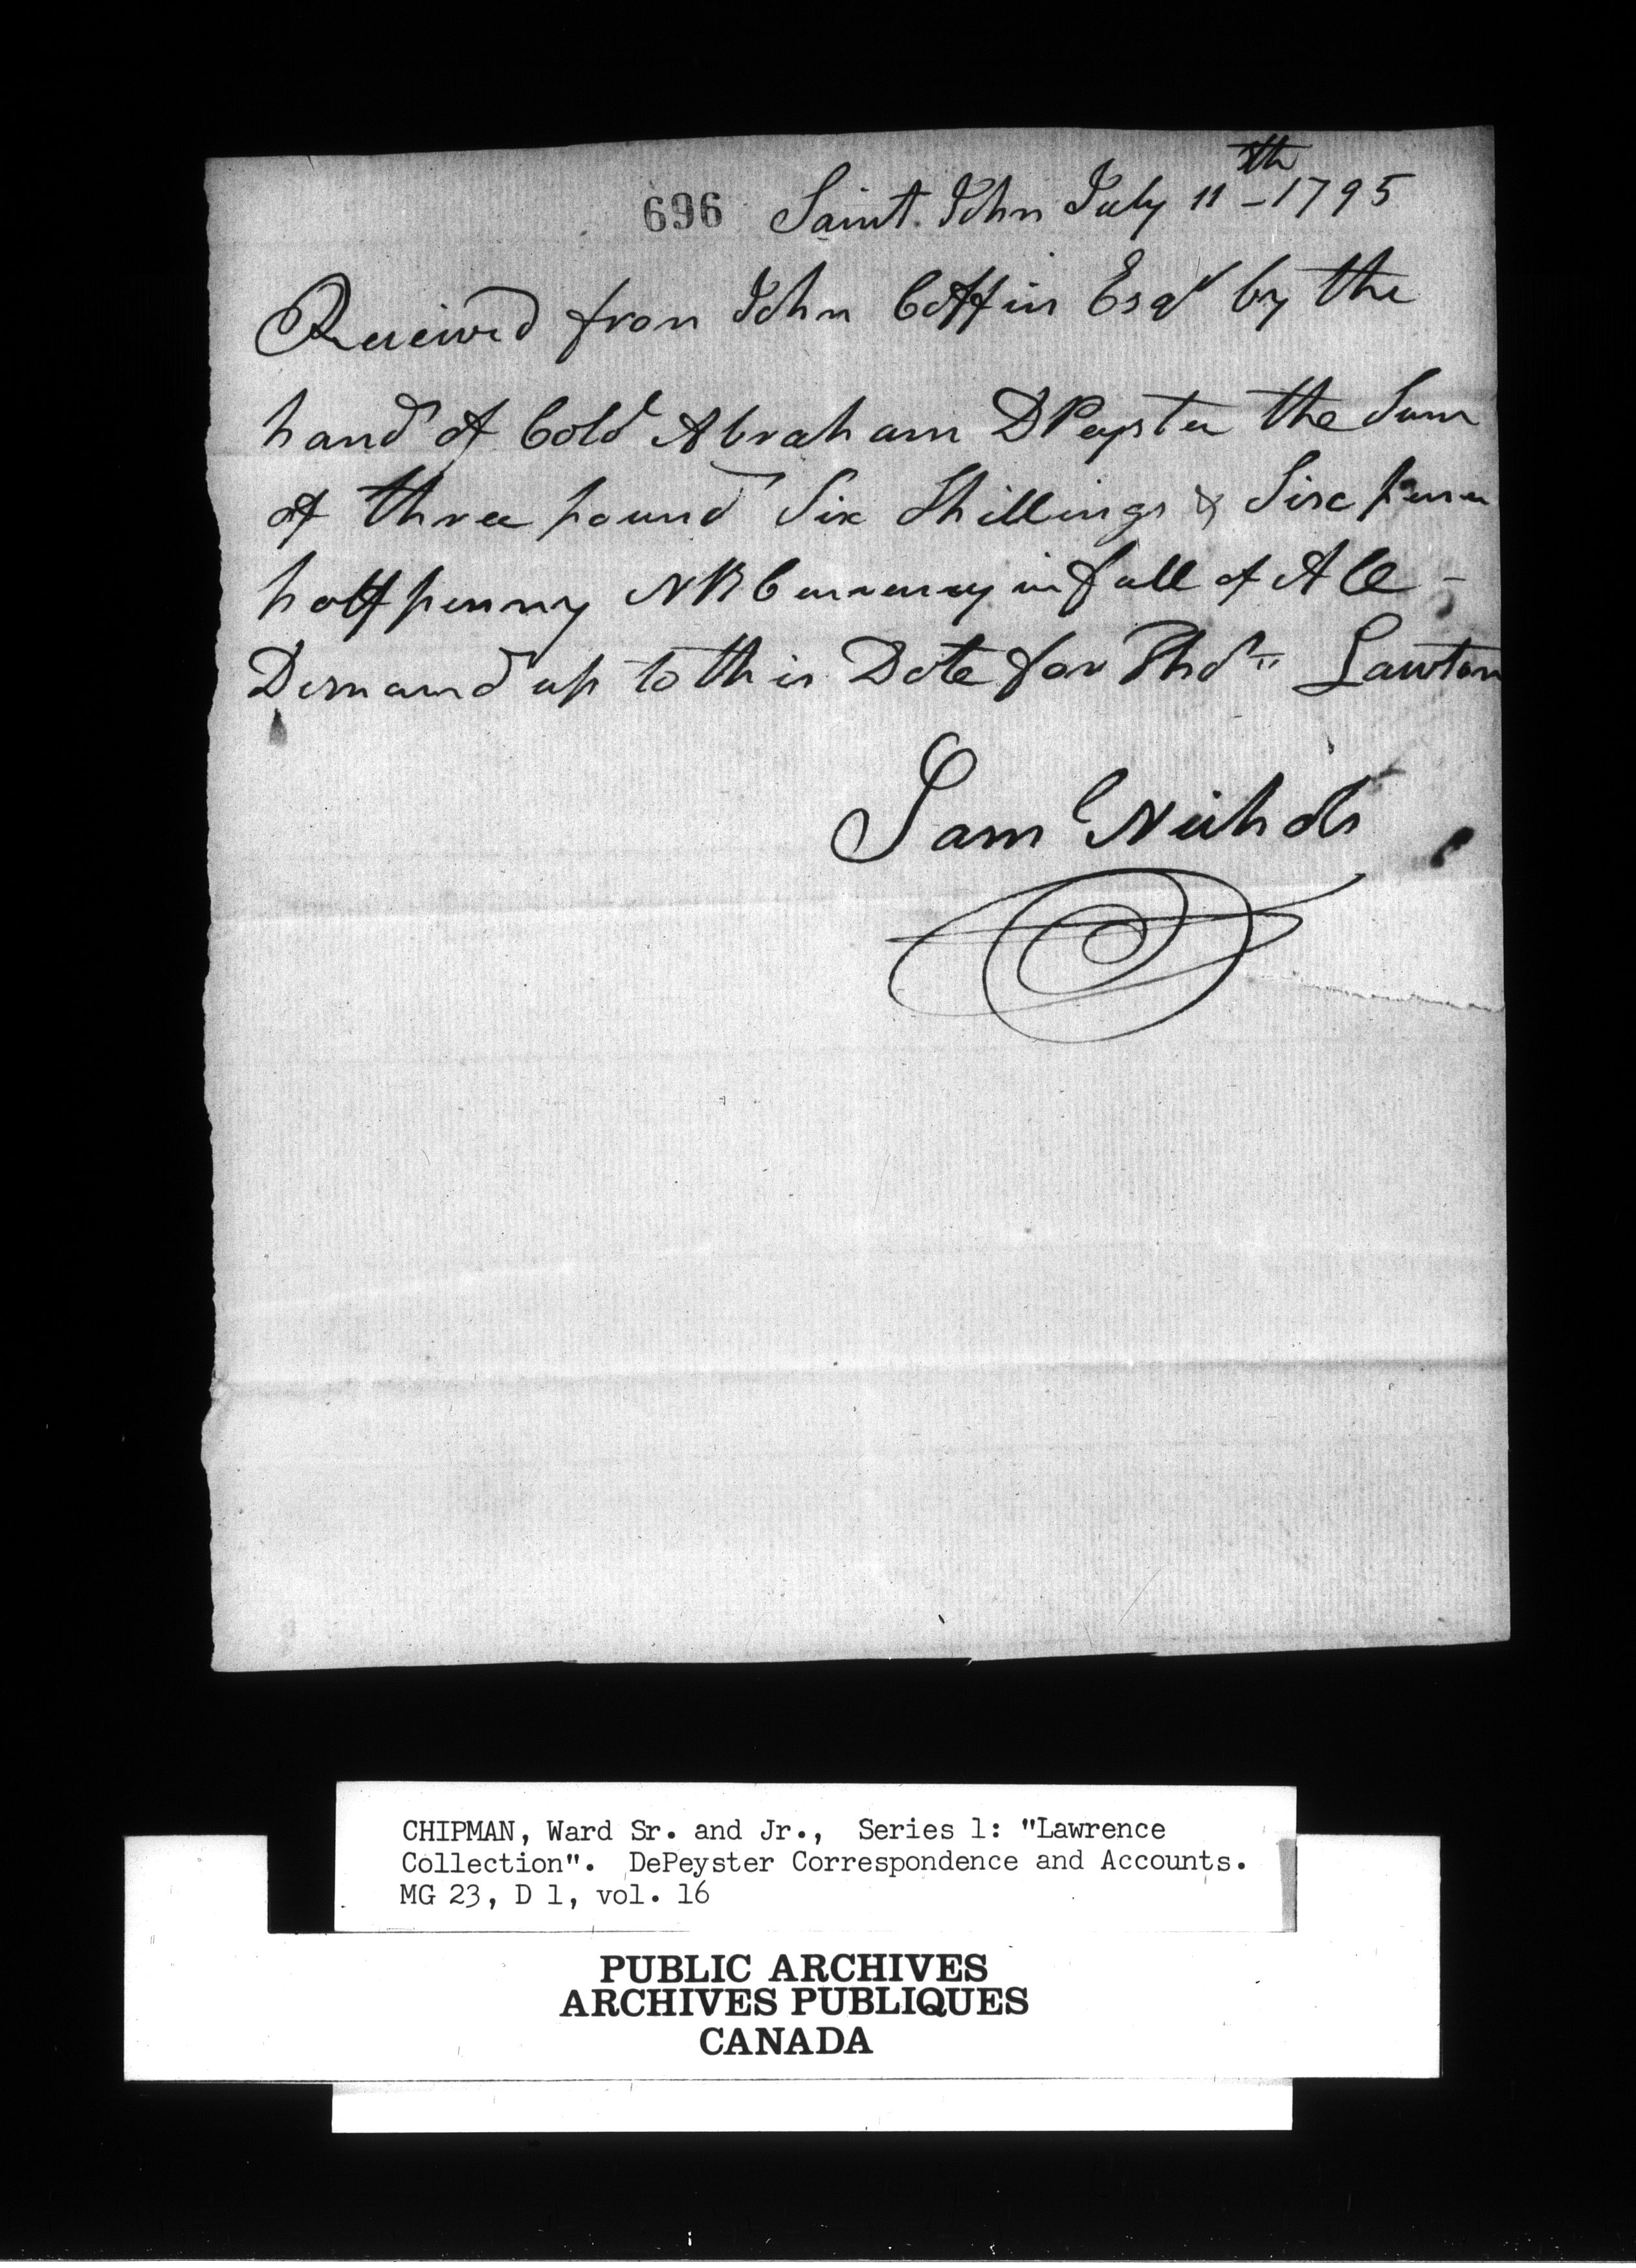 696 Saint John July 11th - 1795
Received from John Coffin Esqr by the
hand of Cold Abraham DPeyster the Sum
of three pound Six Shillings & Sixpence
halfpenny NB Currency in full of All -
Demand up to this Date for Thos Lawton
Sam Nichols
CHIPMAN, Ward Sr. and Jr., Series 1: "Lawrence
Collection". DePeyster Correspondence and Accounts.
MG 23, D 1, vol. 16
PUBLIC ARCHIVES
ARCHIVES PUBLIQUES
CANADA